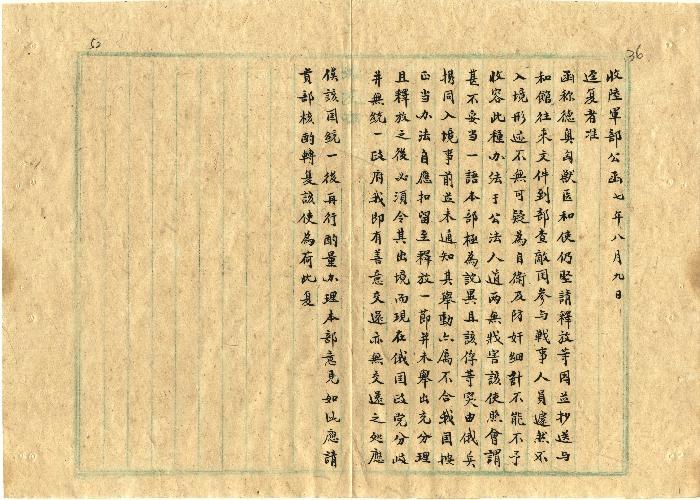 36
52
收陸軍部公函七年八月九日
逕复者准
函称德奥匈獸医和使仍堅請釋放等因並抄送与
和館往来文件到部查敵囯参与戦事人員遽然不
入境形迹不無可疑為自衛及防奸細計不能不予
收容此種办法于公法人道兩無戕害該使照會謂
甚不妥当一語本部極為詫異且該俘等突由俄兵
携同入境事前並未通知其舉動亦属不合我囯按
正当办法自應扣留至釋放一節并未舉出充分理
且釋放之後必須令其出境而現在俄囯政党分歧
并無統一政府我即有善意交還亦無交還之処應
俟該囯統一後再行酌量办理本部意見如此應請
貴部核酌轉复該使為荷此复